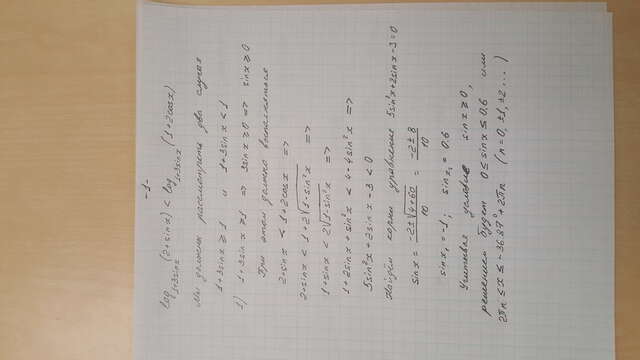 -1-
log_{1+3sinx} (2+sinx) < log_{1+3sinx} (1+2cosx)
Мы должны рассмотреть два случая
1+3sinx ≥ 1 и 1+3sinx < 1
1) 1+3sinx ≥ 1 => 3sinx ≥ 0 => sinx ≥ 0
При этом должно выполняться
2+sinx < 1+2cosx =>
2+sinx < 1+2√(1-sin²x) =>
1+sinx < 2√(1-sin²x) =>
1+2sinx+sin²x < 4-4sin²x =>
5sin²x+2sinx-3<0
Найдём корни уравнения 5sin²x+2sinx-3=0
sinx = (-2±√(4+60))/10 = (-2±8)/10
sinx₁ = -1; sinx₂ = 0.6
Учитывая условие sinx ≥ 0,
решением будет 0 ≤ sinx ≤ 0,6 или
2πn ≤ x ≤ -36.87° + 2πn (n=0, ±1, ±2 ...)